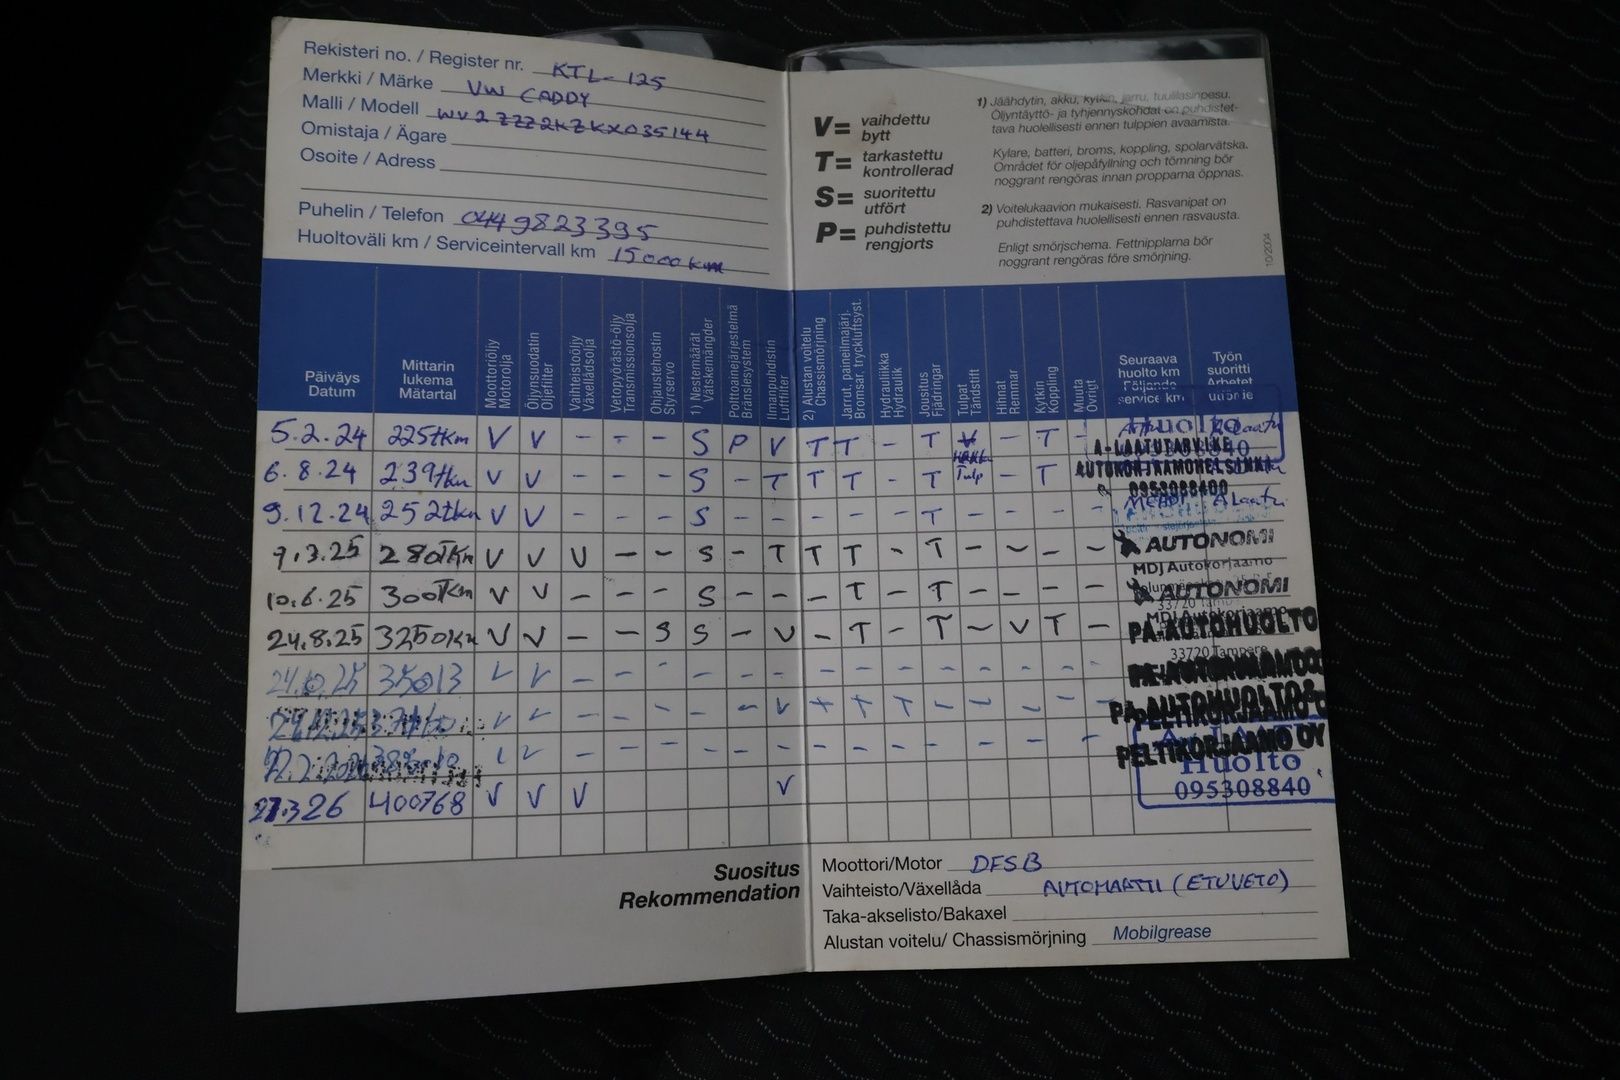 Rekisteri no. / Register nr. KTL-125
Merkki / Märke VW CADDY
Malli / Modell WV2ZZZ2KZKX035144
Omistaja / Ägare
Osoite / Adress
Puhelin / Telefon 0449823395
Huoltoväli km / Serviceintervall km 15000km
V= vaihdettu
bytt
T= tarkastettu
kontrollerad
S= suoritettu
utfört
P= puhdistettu
rengjorts
1) Jäähdytin, akku, kytkin, jarru, tuulilasinpesu.
Öljyntäyttö- ja tyhjennyskohdat on puhdistet-
tava huolellisesti ennen tulppien avaamista.
Kylare, batteri, broms, koppling, spolarvätska.
Området för oljepåfyllning och tömning bör
noggrant rengöras innan propparna öppnas.
2) Voitelukaavion mukaisesti. Rasvanipat on
puhdistettava huolellisesti ennen rasvausta.
Enligt smörjschema. Fettnipplarna bör
noggrant rengöras före smörjning.
10/2004
Päiväys
Datum
Mittarin
lukema
Mätartal
Moottoriöljy
Motorolja
Öljynsuodatin
Oljefilter
Vaihteistoöljy
Växellådsolja
Vetopyörästö-öljy
Transmissionsolja
Ohjaustehostin
Styrservo
1) Nestemäärät
Vätskemängder
Polttoainejärjestelmä
Bränslesystem
Ilmanpuhdistin
Luftfilter
2) Alustan voitelu
Chassismörjning
Jarrut, paineilmajärj.
Bromsar, tryckluftsyst.
Hydrauliikka
Hydraulik
Jousitus
Fjädringar
Tulpat
Tändstift
Hihnat
Remmar
Kytkin
Koppling
Muuta
Övrigt
Seuraava
huolto km
Följande
service km
Työn
suoritti
Arbetet
utförde
5.2.24 225tkm V V - - - S P V T T - T V - T -
Huolto
6.8.24 239tkm V V - - - S - T T T - T Tulp - T
A-LAATUTARVIKE
AUTOKORJAAMOHELSINKI
0953088400
9.12.24 252tkm V V - - - S - - - - - T - - - -
9.3.25 280Tkm V V V - - S - T T T - T - - - -
AUTONOMI
MDJ Autokorjaamo
10.6.25 300Tkm V V - - - S - - - T - T - - - -
AUTONOMI
MDJ Autokorjaamo
24.8.25 3250km V V - - S S - V - T - T - V T -
PA-AUTOHUOLTO
33720 Tampere
V V - - - - - - - - - - - - - -
PA-AUTOHUOLTO&
PELTIKORJAAMO OY
PELTIKORJAAMO OY
27.3.26 400768 V V V V
Huolto
095308840
Suositus
Rekommendation
Moottori/Motor DFSB
Vaihteisto/Växellåda AUTOMAATTI (ETUVETO)
Taka-akselisto/Bakaxel
Alustan voitelu/ Chassismörjning Mobilgrease